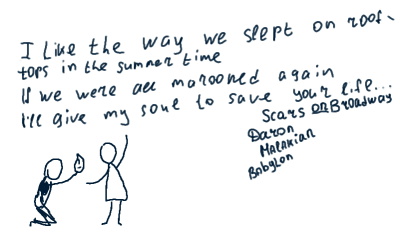 I like the way we slept on roof-
tops in the summer time
If we were all marooned again
I'll give my soul to save your life...
Scars on Broadway
Daron
Malakian
Babylon